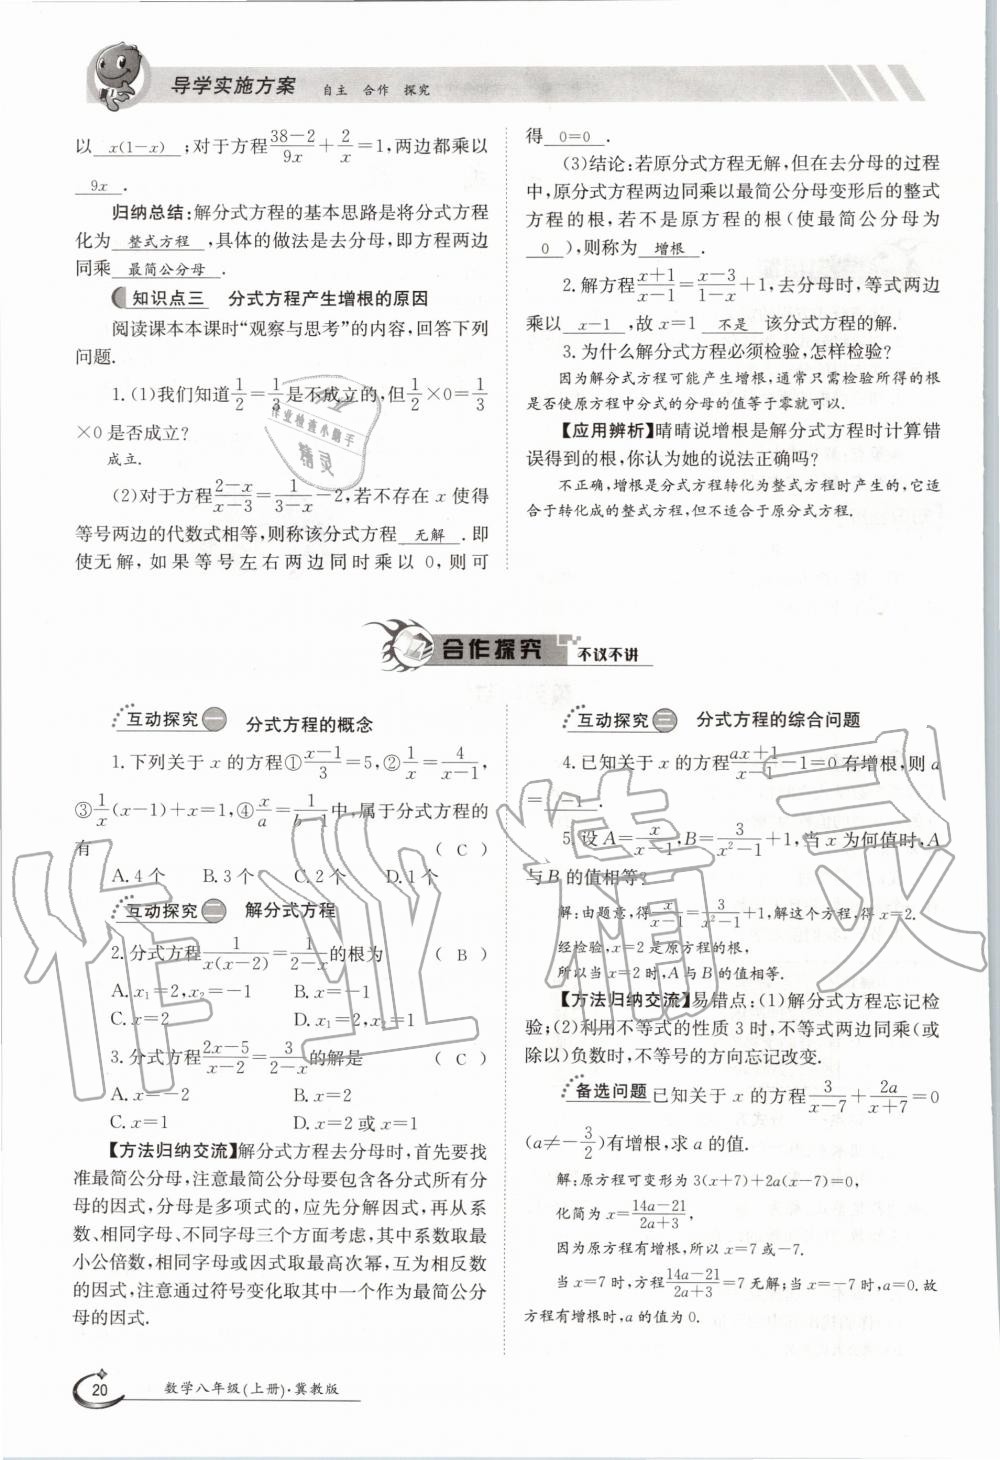 导学实施方案 自主 合作 探究
以 x(1-x) ;对于方程(38-2)/(9x)+2/x=1,两边都乘以
9x .
归纳总结:解分式方程的基本思路是将分式方程
化为 整式方程 ,具体的做法是去分母,即方程两边
同乘 最简公分母 .
知识点三 分式方程产生增根的原因
阅读课本本课时“观察与思考”的内容,回答下列
问题.
1.(1)我们知道1/2=1/3是不成立的,但1/2×0=1/3
×0是否成立?
成立.
(2)对于方程(2-x)/(x-3)=1/(3-x)-2,若不存在 x 使得
等号两边的代数式相等,则称该分式方程 无解 .即
使无解,如果等号左右两边同时乘以 0,则可
得 0=0 .
(3)结论:若原分式方程无解,但在去分母的过程
中,原分式方程两边同乘以最简公分母变形后的整式
方程的根,若不是原方程的根(使最简公分母为
0 ),则称为 增根 .
2.解方程(x+1)/(x-1)=(x-3)/(1-x)+1,去分母时,等式两边
乘以 x-1 ,故 x=1 不是 该分式方程的解.
3.为什么解分式方程必须检验,怎样检验?
因为解分式方程可能产生增根,通常只需检验所得的根
是否使原方程中分式的分母的值等于零就可以.
【应用辨析】晴晴说增根是解分式方程时计算错
误得到的根,你认为她的说法正确吗?
不正确,增根是分式方程转化为整式方程时产生的,它适
合于转化成的整式方程,但不适合于原分式方程.
作业检查小助手
精灵
合作探究 不议不讲
互动探究一 分式方程的概念
1.下列关于 x 的方程①(x-1)/3=5,②1/x=4/(x-1),
③1/x(x-1)+x=1,④x/a=1/(b-1)中,属于分式方程的
有 ( C )
A.4个 B.3个 C.2个 D.1个
互动探究二 解分式方程
2.分式方程1/(x(x-2))=1/(2-x)的根为 ( B )
A.x₁=2,x₂=-1 B.x=-1
C.x=2 D.x₁=2,x₂=1
3.分式方程(2x-5)/(x-2)=3/(2-x)的解是 ( C )
A.x=-2 B.x=2
C.x=1 D.x=2或x=1
【方法归纳交流】解分式方程去分母时,首先要找
准最简公分母,注意最简公分母要包含各分式所有分
母的因式,分母是多项式的,应先分解因式,再从系
数、相同字母、不同字母三个方面考虑,其中系数取最
小公倍数,相同字母或因式取最高次幂,互为相反数
的因式,注意通过符号变化取其中一个作为最简公分
母的因式.
互动探究三 分式方程的综合问题
4.已知关于 x 的方程(ax+1)/(x-1)-1=0有增根,则 a
= -1 .
5.设 A=x/(x-1),B=3/(x²-1)+1,当 x 为何值时,A
与 B 的值相等?
解:由题意,得x/(x-1)=3/(x²-1)+1,解这个方程,得 x=2.
经检验,x=2是原方程的根,
所以当 x=2时,A 与 B 的值相等.
【方法归纳交流】易错点:(1)解分式方程忘记检
验;(2)利用不等式的性质3时,不等式两边同乘(或
除以)负数时,不等号的方向忘记改变.
备选问题 已知关于 x 的方程3/(x-7)+2a/(x+7)=0
(a≠-3/2)有增根,求 a 的值.
解:原方程可变形为3(x+7)+2a(x-7)=0,
化简为 x=(14a-21)/(2a+3),
因为原方程有增根,所以 x=7或-7.
当 x=7时,方程(14a-21)/(2a+3)=7无解;当 x=-7时,a=0.故
方程有增根时,a 的值为0.
作业精灵
20 数学八年级(上册)·冀教版